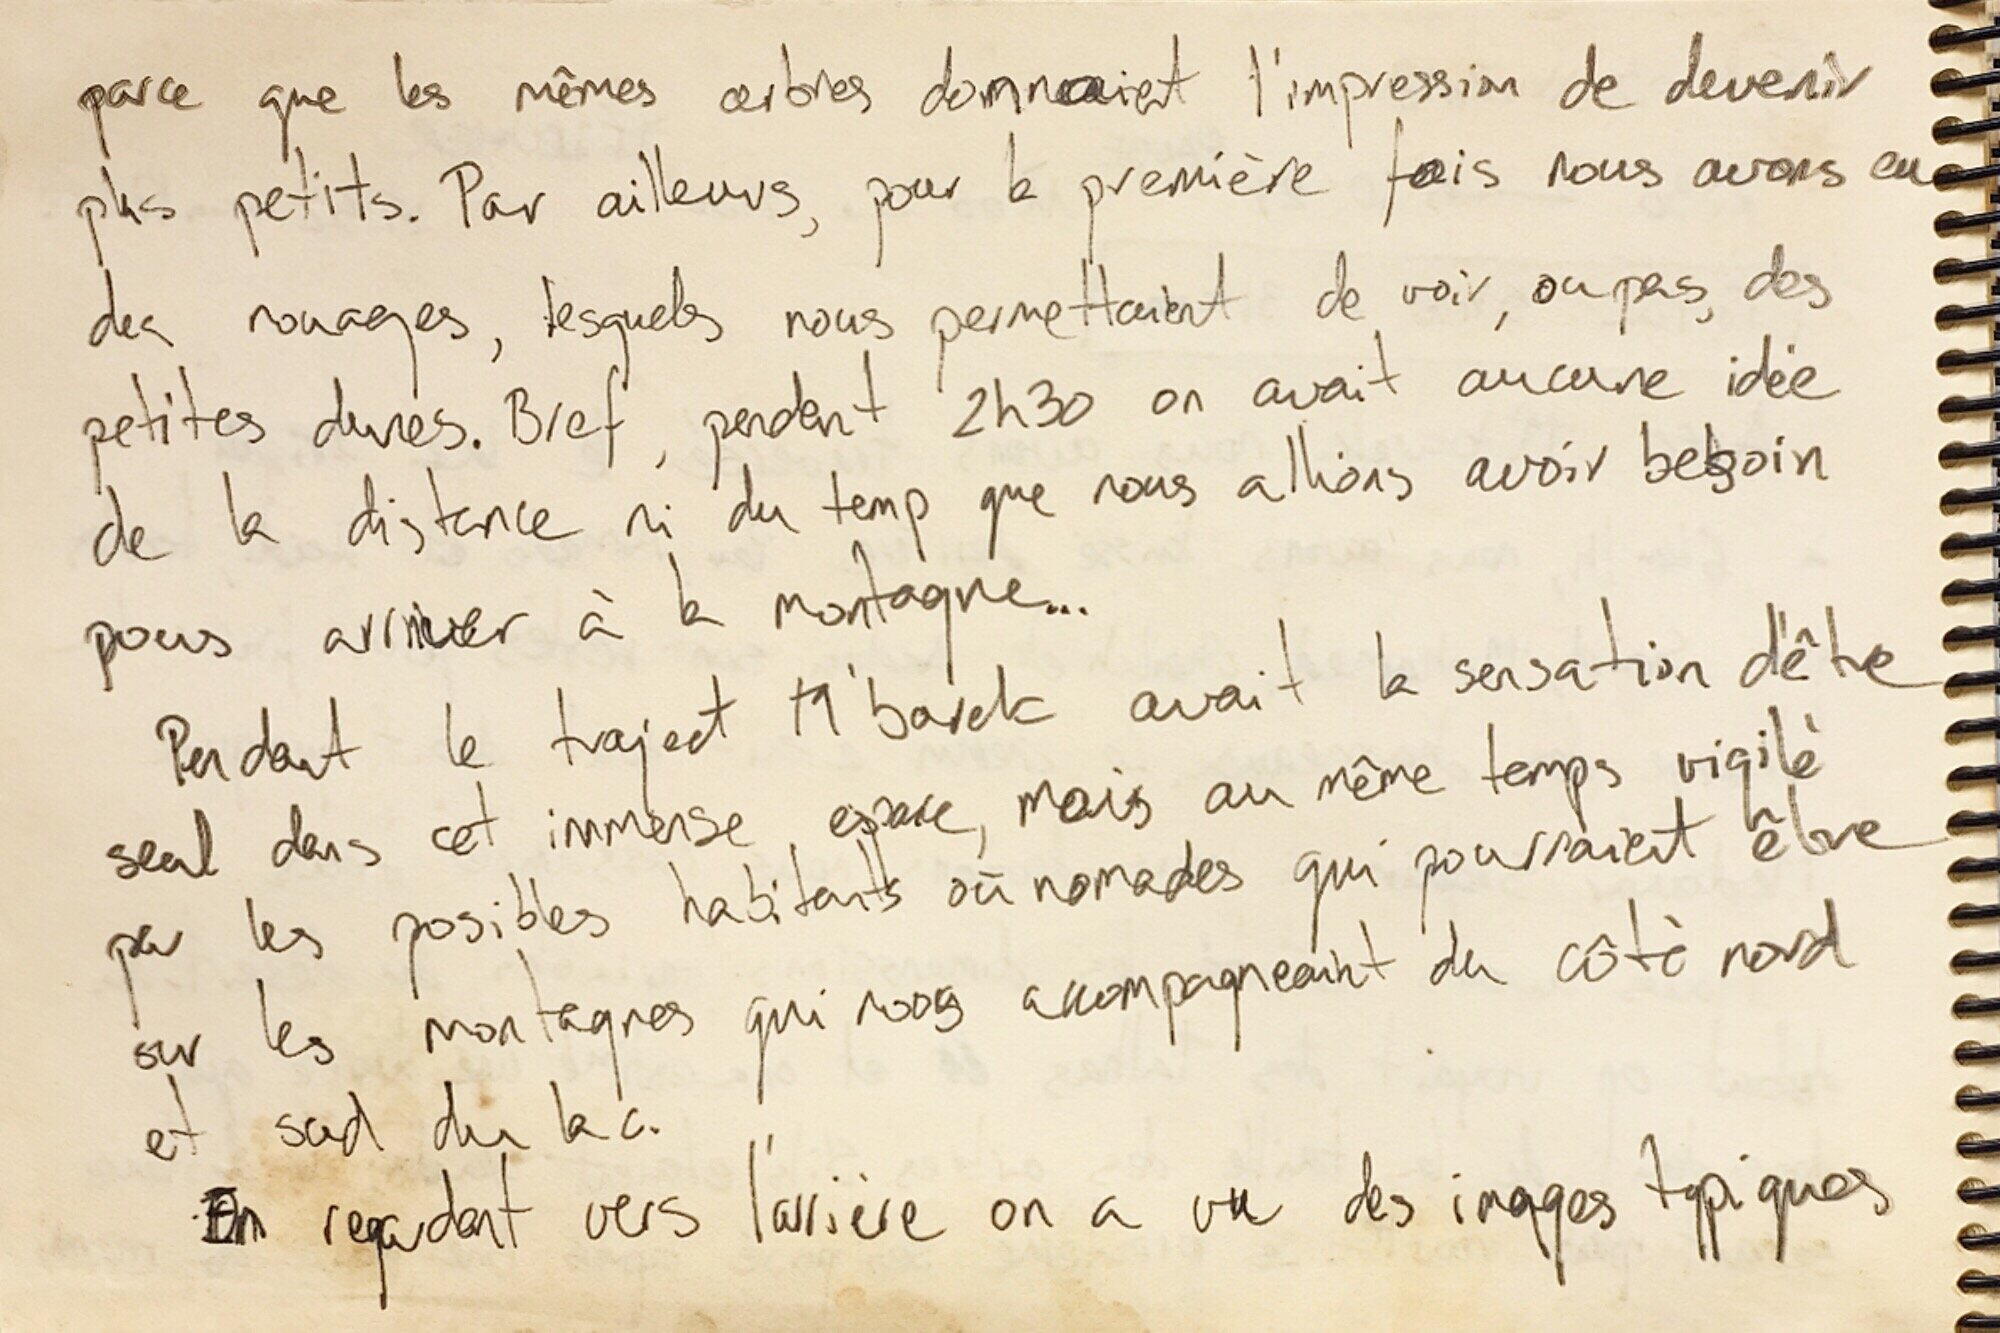 parce que les mêmes arbres donnaient l'impression de devenir
plus petits. Par ailleurs, pour la première fois nous avons eu
des nouages, lesquels nous permettaient de voir, ou pas, des
petites dunes. Bref, pendant 2h30 on avait aucune idée
de la distance ni du temp que nous allions avoir besoin
pous arriver à la montagne...
Pendant le traject M'barek avait la sensation d'être
seul dans cet immense espace, mais au même temps vigilé
par les posibles habitants où nomades qui pourraient être
sur les montagnes qui nous accompagneaint du côté nord
et sud du lac.
En regardant vers l'arrière on a vu des images typiques